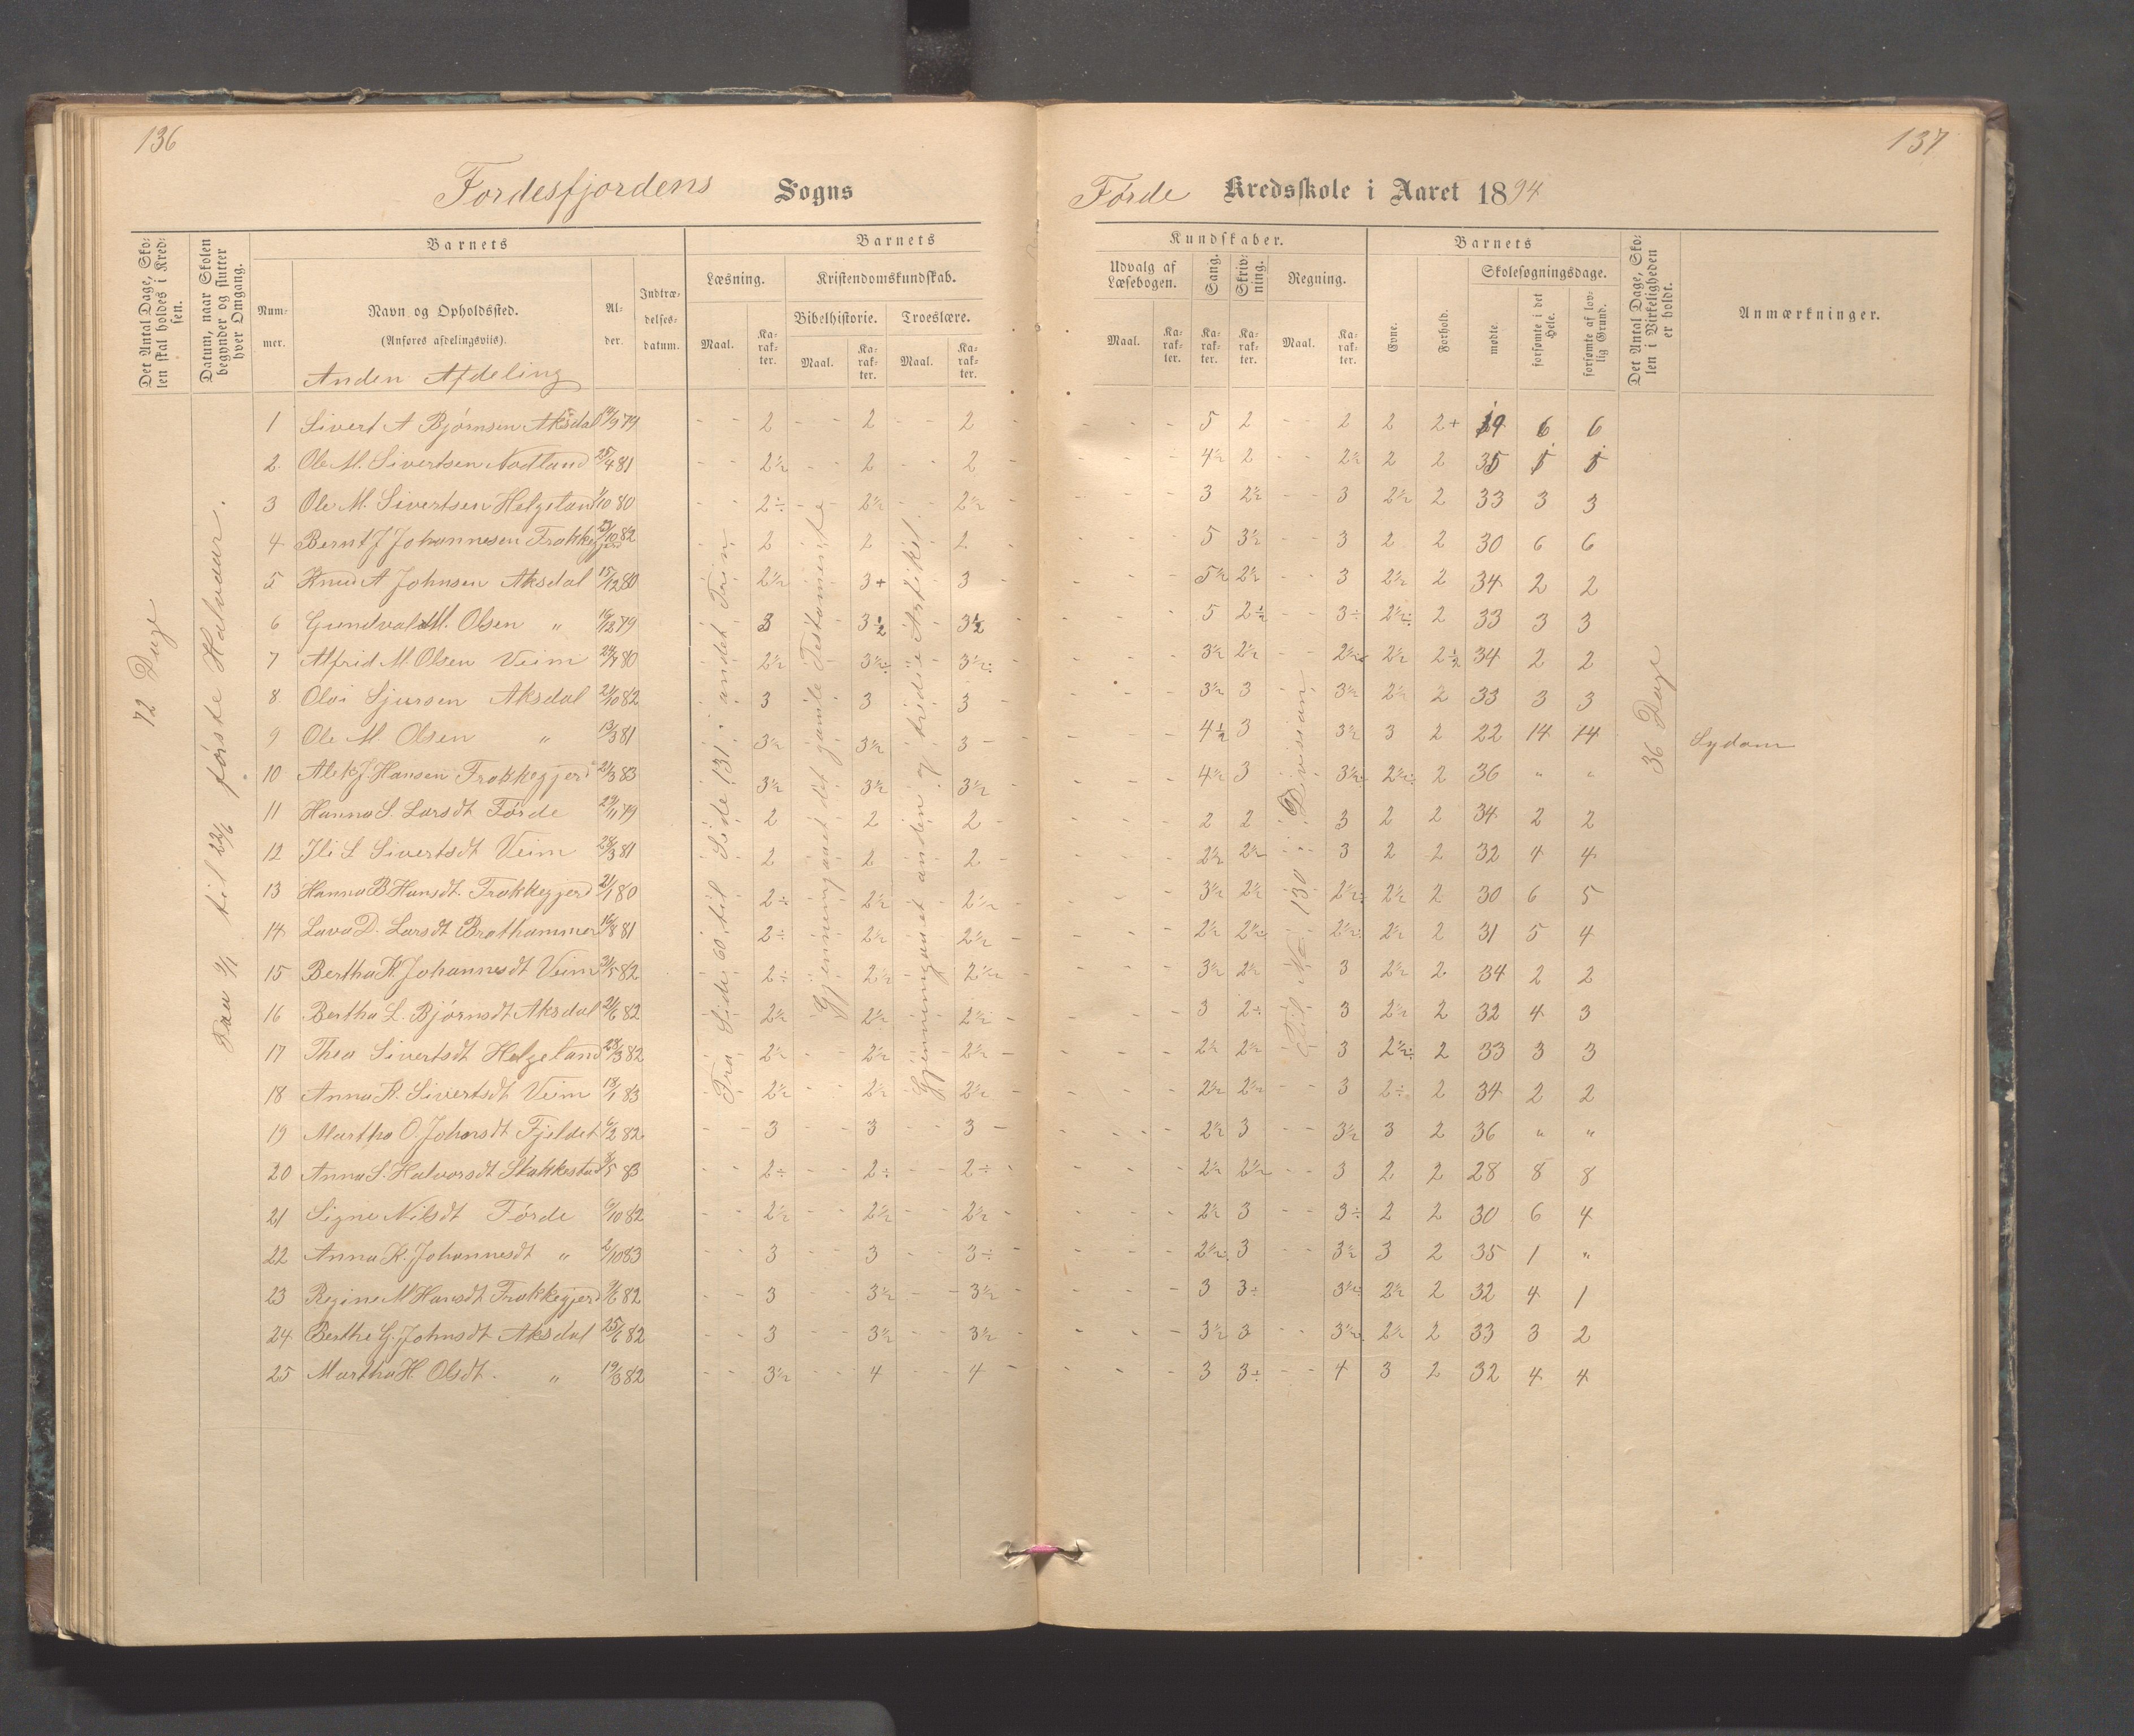 136
137
Fordesfjordens Sogns
Førde Kredsskole i Aaret 1894
Det Antal Dage, Skolen skal holdes i Kredsen.
Datum, naar Skolen begynder og slutter hver Omgang.
Barnets
Nummer.
Navn og Opholdssted.
(Anføres afdelingsviis).
Alder.
Indtrædelsesdatum.
Barnets
Læsning.
Kristendomskundskab.
Bibelhistorie.
Troeslære.
Maal.
Karakter.
Maal.
Karakter.
Maal.
Karakter.
Kundskaber.
Udvalg af Læsebogen.
Sang.
Skrivning.
Regning.
Maal.
Karakter.
Karakter.
Karakter.
Maal.
Karakter.
Barnets
Evne.
Forhold.
Skolesøgningsdage.
mødte.
forsømte i det Hele.
forsømte af lovlig Grund.
Det Antal Dage, Skolen i Virkeligheden er holdt.
Anmærkninger.
Anden Afdeling
72 Dage
første Halvaar.
Fra Side 60 til Side 131 i andet Trin
Gjennemgaaet det gamle Testamente
Gjennemgaaet anden og tredie Artikel
Til No 130 i Division
36 Dage
1 Sivert A Bjørnsen Aksdal 19/9 79 - - 2 - - 2 - - 2 - - - 5 2 2 2 2+ 19 6 6
2 Ole M. Sivertsen Nodland 25/4 81 - - 2½ - - 2 - - 2 - - - 4½ 2 - - 2½ 2 2 35 1 1
3 Ole M. Sivertsen Helgeland 1/10 80 - - 2÷ - - 2½ - - 2½ - - - 3 2½ - - 3 2½ 2 33 3 3
4 Bernt J Johannesen Frakkegjerd 23/10 82 2 2 2 - - - 5 3½ - - 3 2 2 30 6 6
5 Knud A Johnsen Aksdal 15/12 80 2½ 3+ 3 - - - 5½ 2½ - - 3 2½ 2 34 2 2
6 Gundvald M. Olsen " 16/12 79 3 3½ 3½ - - - 5 2½ - - 3÷ 2½÷ 2 33 3 3
7 Alfrid M. Olsen Veim 24/7 80 2½ 3½÷ 3½÷ 3½ 2½ - - 2½ 2½ 2½ 34 2 2
8 Olai Sjursen Aksdal 21/10 82 3 3 3 3½ 3 3½ 2½ 2 33 3 3
9 Ole M. Olsen " 13/3 81 3½ 3½ 3 4½ 3 3½ 3 2 22 14 14 Sygdom
10 Alek J. Hansen Frakkegjerd 21/3 83 3½ 3½ 3½ 4½ 3 3½ 2½÷ 2 36 " "
11 Hanna S. Larsdt Førde 29/11 79 2 2 2 2 2 3 2 2 34 2 2
12 Ili S Sivertsdt Veim 28/3 81 2 2 2 2½ 2½ 3 2 2 32 4 4
13 Hanna B Hansdt. Frakkegjerd 21/1 80 2÷ 2½ 2½ 3½ 2½ 2½÷ 2½ 2 30 6 5
14 Lava D. Larsdt Brathammer 16/8 81 2÷ 2½ 2½ 2½ 2½ 2½ 2½ 2 31 5 4
15 Bertha K. Johannesdt Veim 31/5 82 2÷ 2½ 2½ 3½ 2½ 3 2½ 2 34 2 2
16 Bertha L. Bjørnsdt Aksdal 21/6 82 2½ 2½ 2½ 3 2÷ 3 2½ 2 32 4 3
17 Thea Sivertsdt Helgeland 23/3 82 2½ 2½ 2½ 2½ 2½ 3 2½÷ 2 33 3 3
18 Anna K. Sivertsdt Veim 18/1 83 2½ 2½ 2½ 2½ 2½ 3 2÷ 2 34 2 2
19 Martha O. Johansdt Fjeldet 6/2 82 3 3 3 2½ 3 3½ 3 2 36 " "
20 Anna S. Halvorsdt Stakkestad 3/5 83 2÷ 2÷ 2÷ 2½ 2½ 3 2 2 28 8 8
21 Signe Nilsdt Førde 6/10 82 2½ 2½ 2½ 2½ 3 3÷ 2 2 30 6 4
22 Anna K. Johannesdt " 2/10 83 3 3 3÷ 2½ 3 3½ 3 2 35 1 "
23 Regine M Hansdt Frakkegjerd 9/6 82 3 3½ 3½ 3 3÷ 3½ 2½ 2 32 4 1
24 Berthe G. Johnsdt Aksdal 25/6 82 3 3½ 3½ 3½ 3 3½ 2½ 2 33 3 2
25 Martha H. Olsdt. " 19/3 82 3½ 4 4 3 3÷ 4 3 2 32 4 4